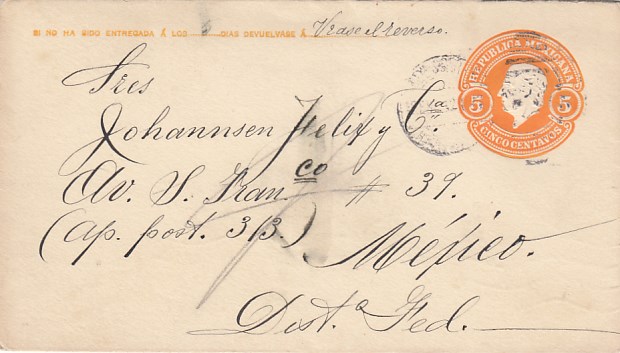 SI NO HA SIDO ENTREGADA Á LOS DIAS DEVUELVASE Á Vease el reverso.
REPUBLICA MEXICANA
5 5
CINCO CENTAVOS
Sres
Johannsen Felix y Cía
Av. S. Franco # 39.
(Ap. post. 313.) México.
Dist.o Fed.